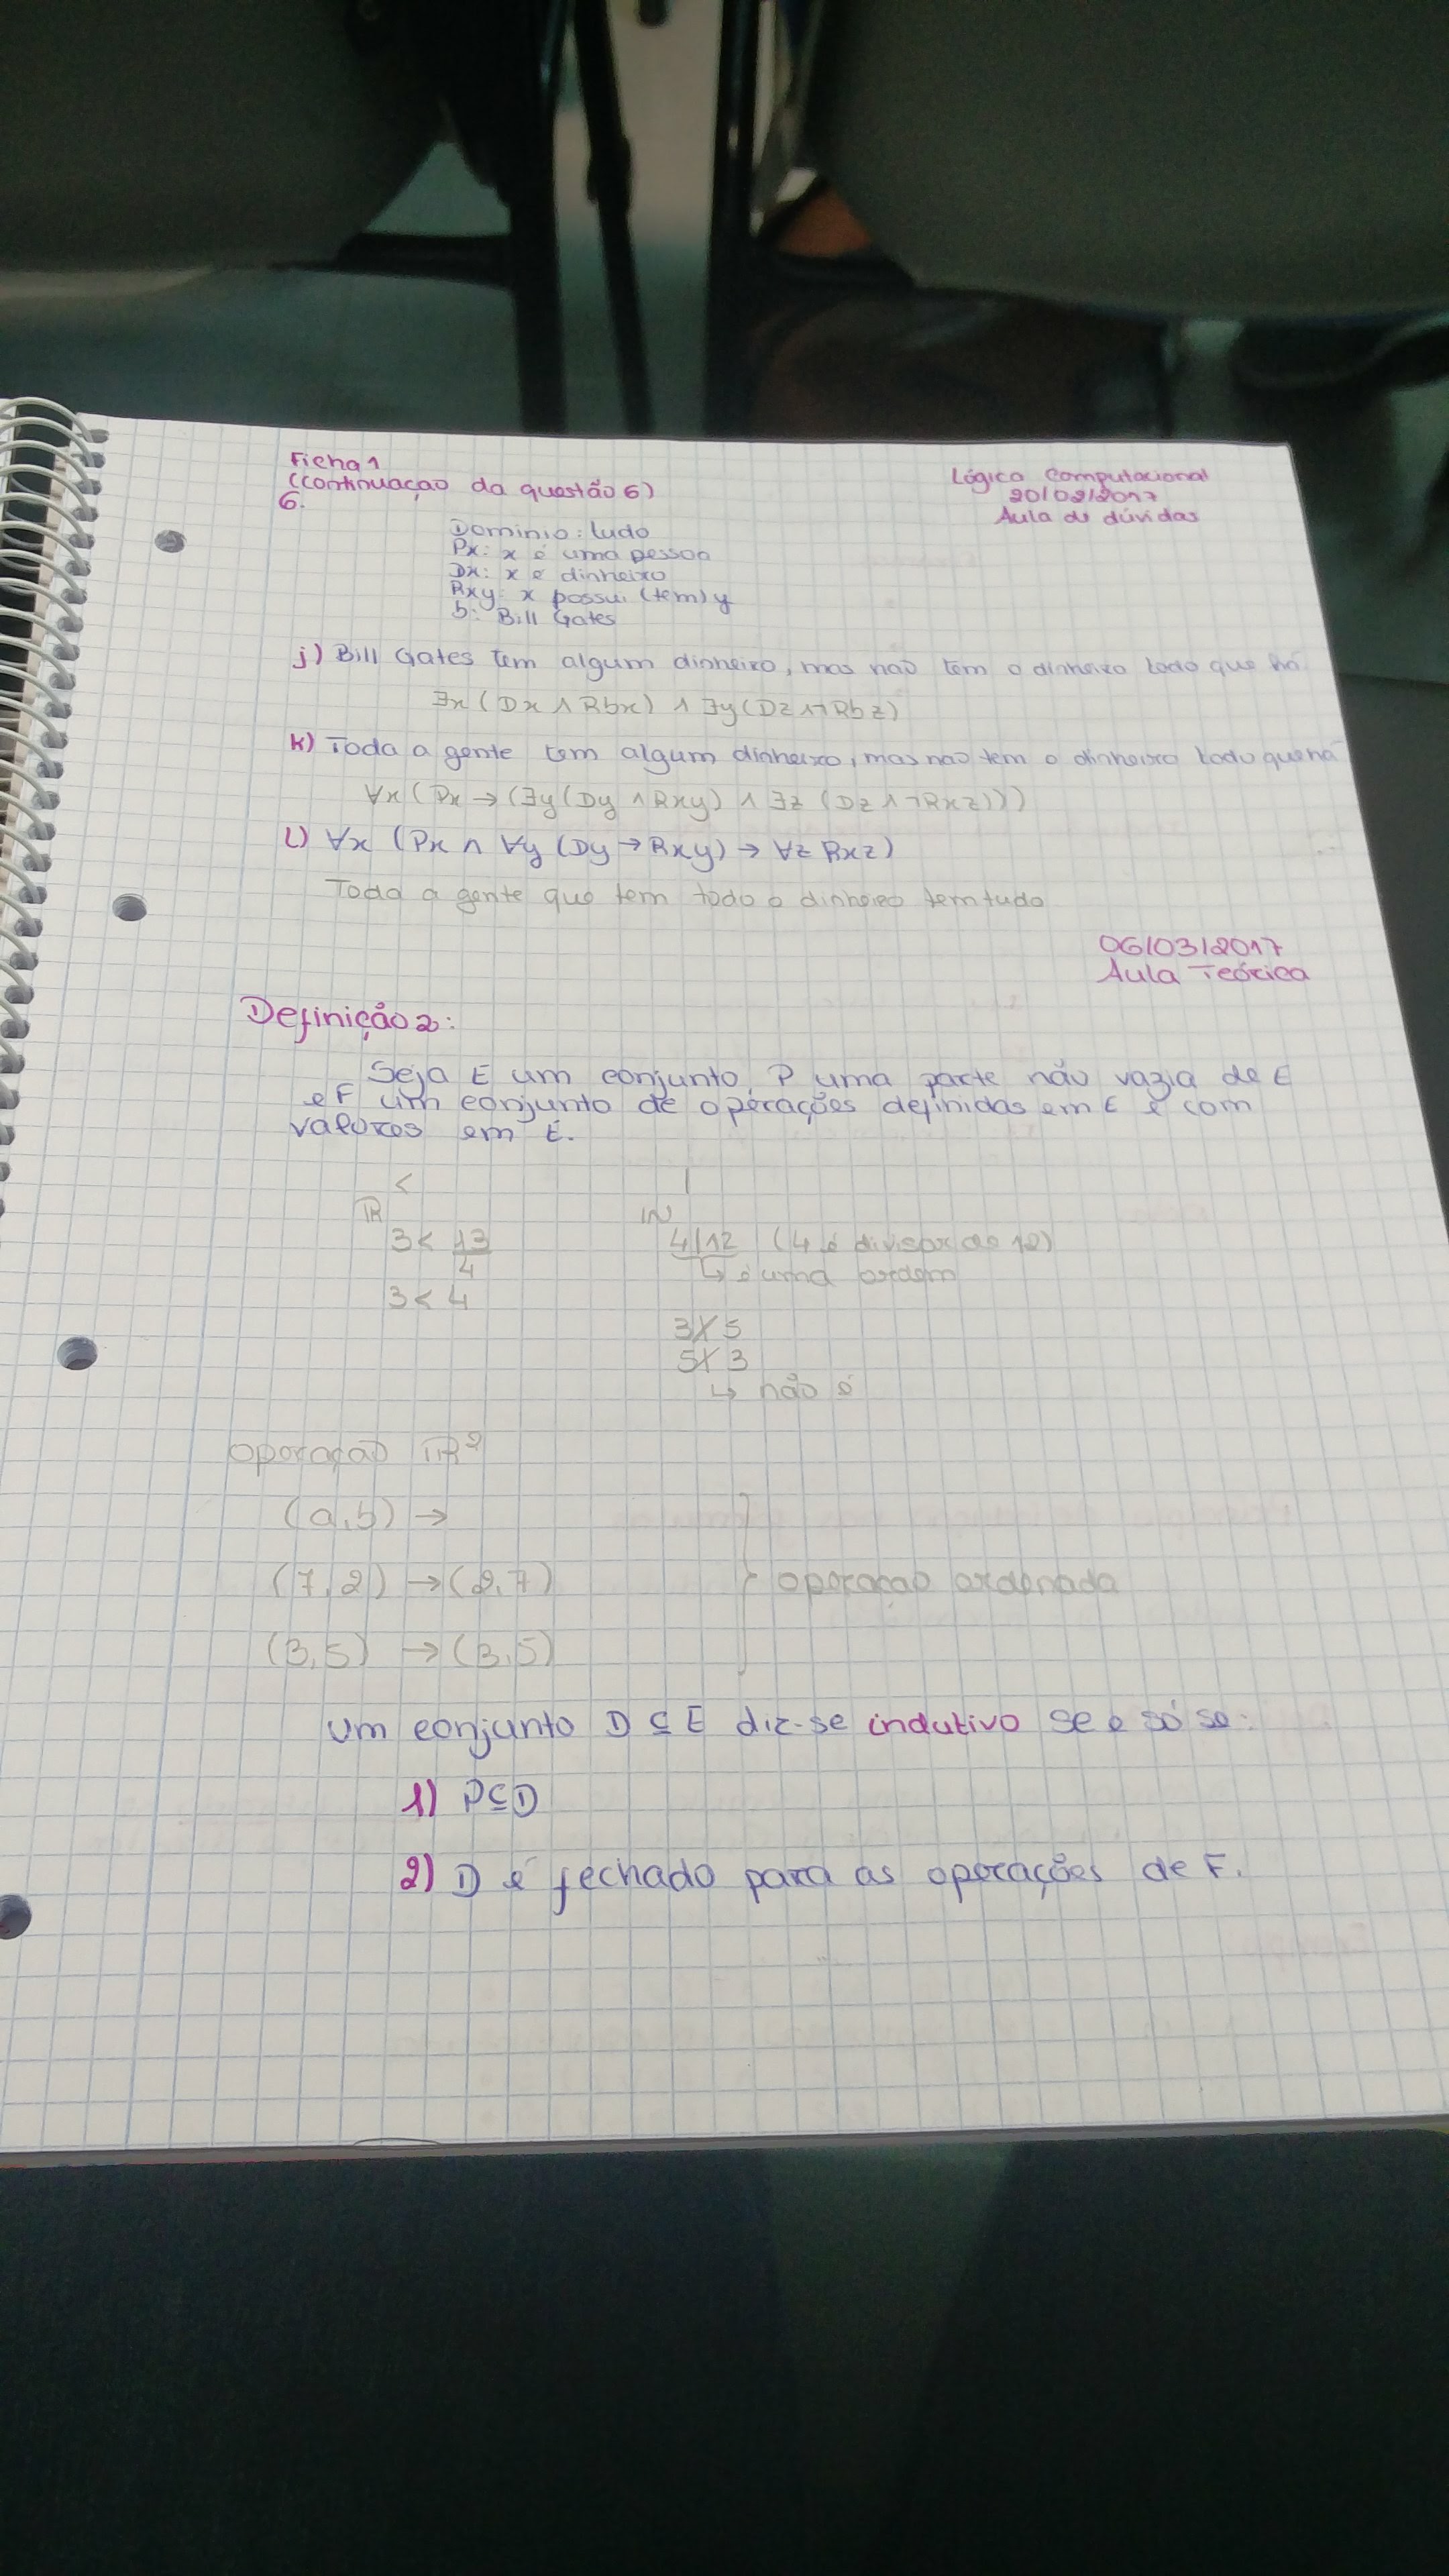 Ficha 1
(continuação da questão 6)
6.
Lógica Computacional
20/02/2017
Aula de dúvidas
Domínio: tudo
Px: x é uma pessoa
Dx: x é dinheiro
Rxy: x possui (tem) y
b: Bill Gates
j) Bill Gates tem algum dinheiro, mas não tem o dinheiro todo que há
∃x (Dx ∧ Rbx) ∧ ∃y (Dz ∧ ¬Rbz)
k) Toda a gente tem algum dinheiro, mas não tem o dinheiro todo que há
∀x (Px → (∃y (Dy ∧ Rxy) ∧ ∃z (Dz ∧ ¬Rxz)))
l) ∀x (Px ∧ ∀y (Dy → Rxy) → ∀z Rxz)
Toda a gente que tem todo o dinheiro tem tudo
06/03/2017
Aula Teórica
Definição 2:
Seja E um conjunto, P uma parte não vazia de E
e F um conjunto de operações definidas em E e com
valores em E.
< |
ℝ ℕ
3 < 13/4 4|12 (4 é divisor de 12)
↳ é uma ordem
3 < 4
3∤5
5∤3
↳ não é
operação ℝ²
(a,b) →
(7,2) → (2,7) } operação ordenada
(3,5) → (3,5)
Um conjunto D ⊆ E diz-se indutivo se e só se:
1) P⊆D
2) D é fechado para as operações de F.